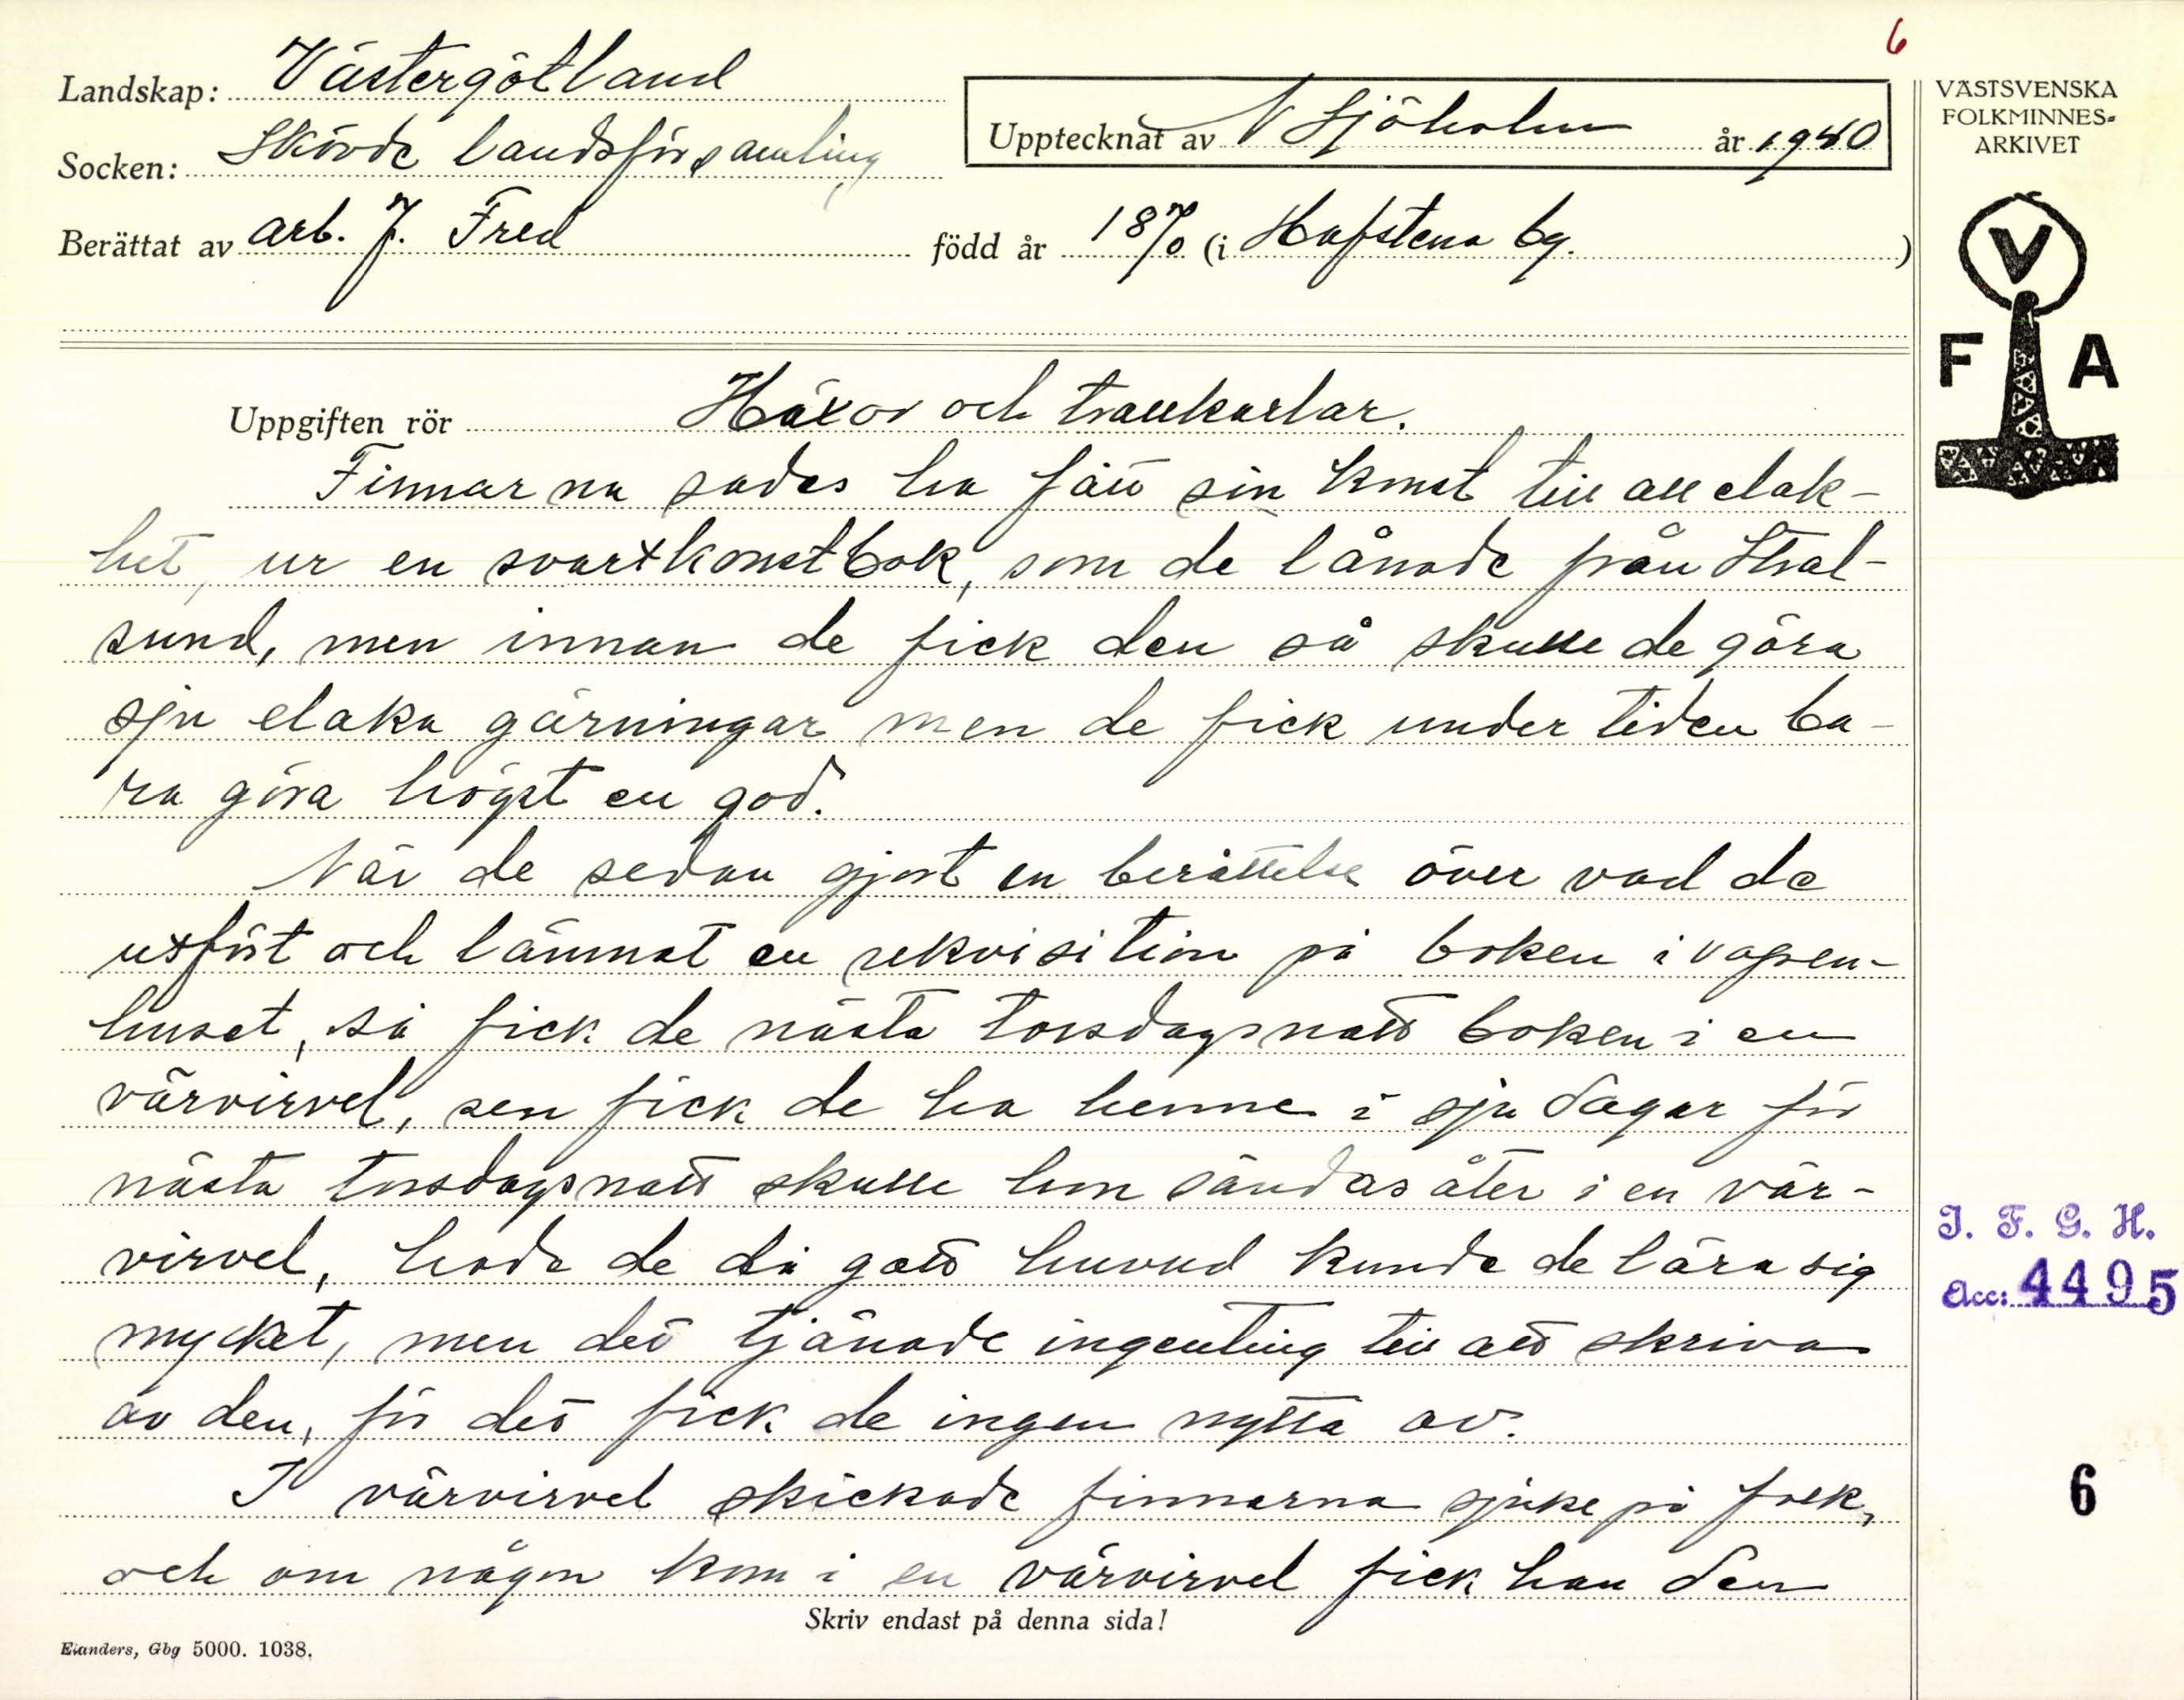 6
Landskap: Västergötland
Socken: Skövde landsförsamling
Berättat av arb. J. Fred född år 1870 (i Hafstena by. )
Upptecknat av N Sjöholm år 1940
VÄSTSVENSKA
FOLKMINNES-
ARKIVET
V
F A
Uppgiften rör Häxor och trollkarlar.
Finnarna sades ha fått sin konst till all elak-
het, ur en svartkonstbok, som de lånade från Stral-
sund, men innan de fick den så skulle de göra
sju elaka gärningar men de fick under tiden ba-
ra göra högst en god.
När de sedan gjort en berättelse över vad de
utfört och lämnat en rekvisition på boken i vapen-
huset, så fick de nästa torsdagsnatt boken i en
värvirvel, sen fick de ha henne i sju dagar för
nästa torsdagsnatt skulle hon sändas åter i en vär-
virvel, hade de då gott huvud kunde de lära sig
mycket, men det tjänade ingenting till att skriva
av den, för det fick de ingen nytta av.
I värvirvel skickade finnarna sjuke på folk,
och om någon kom i en värvirvel fick han den
I. F. G. H.
Acc: 4495
6
Skriv endast på denna sida!
Elanders, Gbg 5000. 1038.